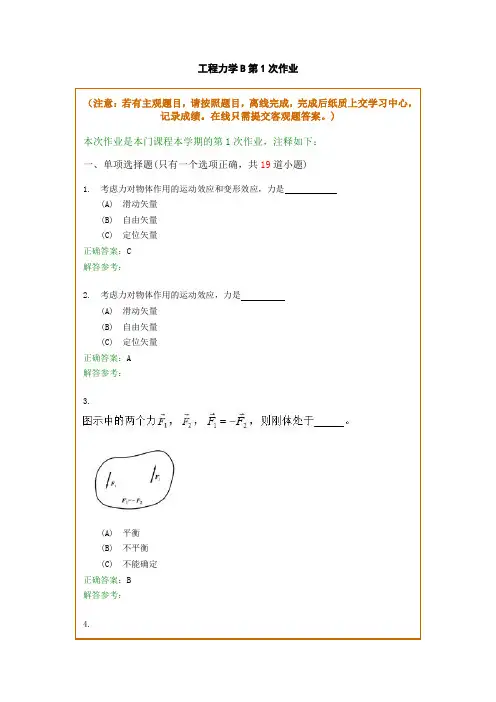 工程力学B第1次作业
(注意:若有主观题目,请按照题目,离线完成,完成后纸质上交学习中心,
记录成绩。在线只需提交客观题答案。)
本次作业是本门课程本学期的第1次作业,注释如下:
一、单项选择题(只有一个选项正确,共19道小题)
1. 考虑力对物体作用的运动效应和变形效应,力是
(A) 滑动矢量
(B) 自由矢量
(C) 定位矢量
正确答案:C
解答参考:
2. 考虑力对物体作用的运动效应,力是
(A) 滑动矢量
(B) 自由矢量
(C) 定位矢量
正确答案:A
解答参考:
3.
图示中的两个力F₁,F₂,F₁=-F₂,则刚体处于______。
F₁=-F₂
(A) 平衡
(B) 不平衡
(C) 不能确定
正确答案:B
解答参考:
4.